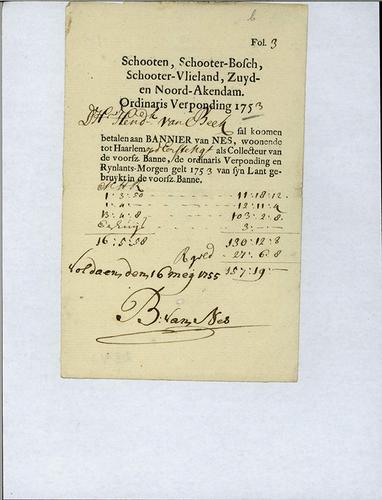 Fol. 3
Schooten, Schooter-Bosch,
Schooter-Vlieland, Zuyd-
en Noord-Akendam.
Ordinaris Verponding 1753
Hend van Beek sal koomen
betalen aan BANNIER van NES, woonende
tot Haarlem, als Collecteur van
de voorsz. Banne, de ordinaris Verponding en
Rynlants-Morgen gelt 1753 van syn Lant ge-
bruykt in de voorsz. Banne.
1:3:50 11:18:12
12:11:4
13:4:8 103:2:8
3:—
16:5:58 130:12:8
27:6:8
Voldaen, den, 16 mey 1755 157:19:—
B: van, Nes